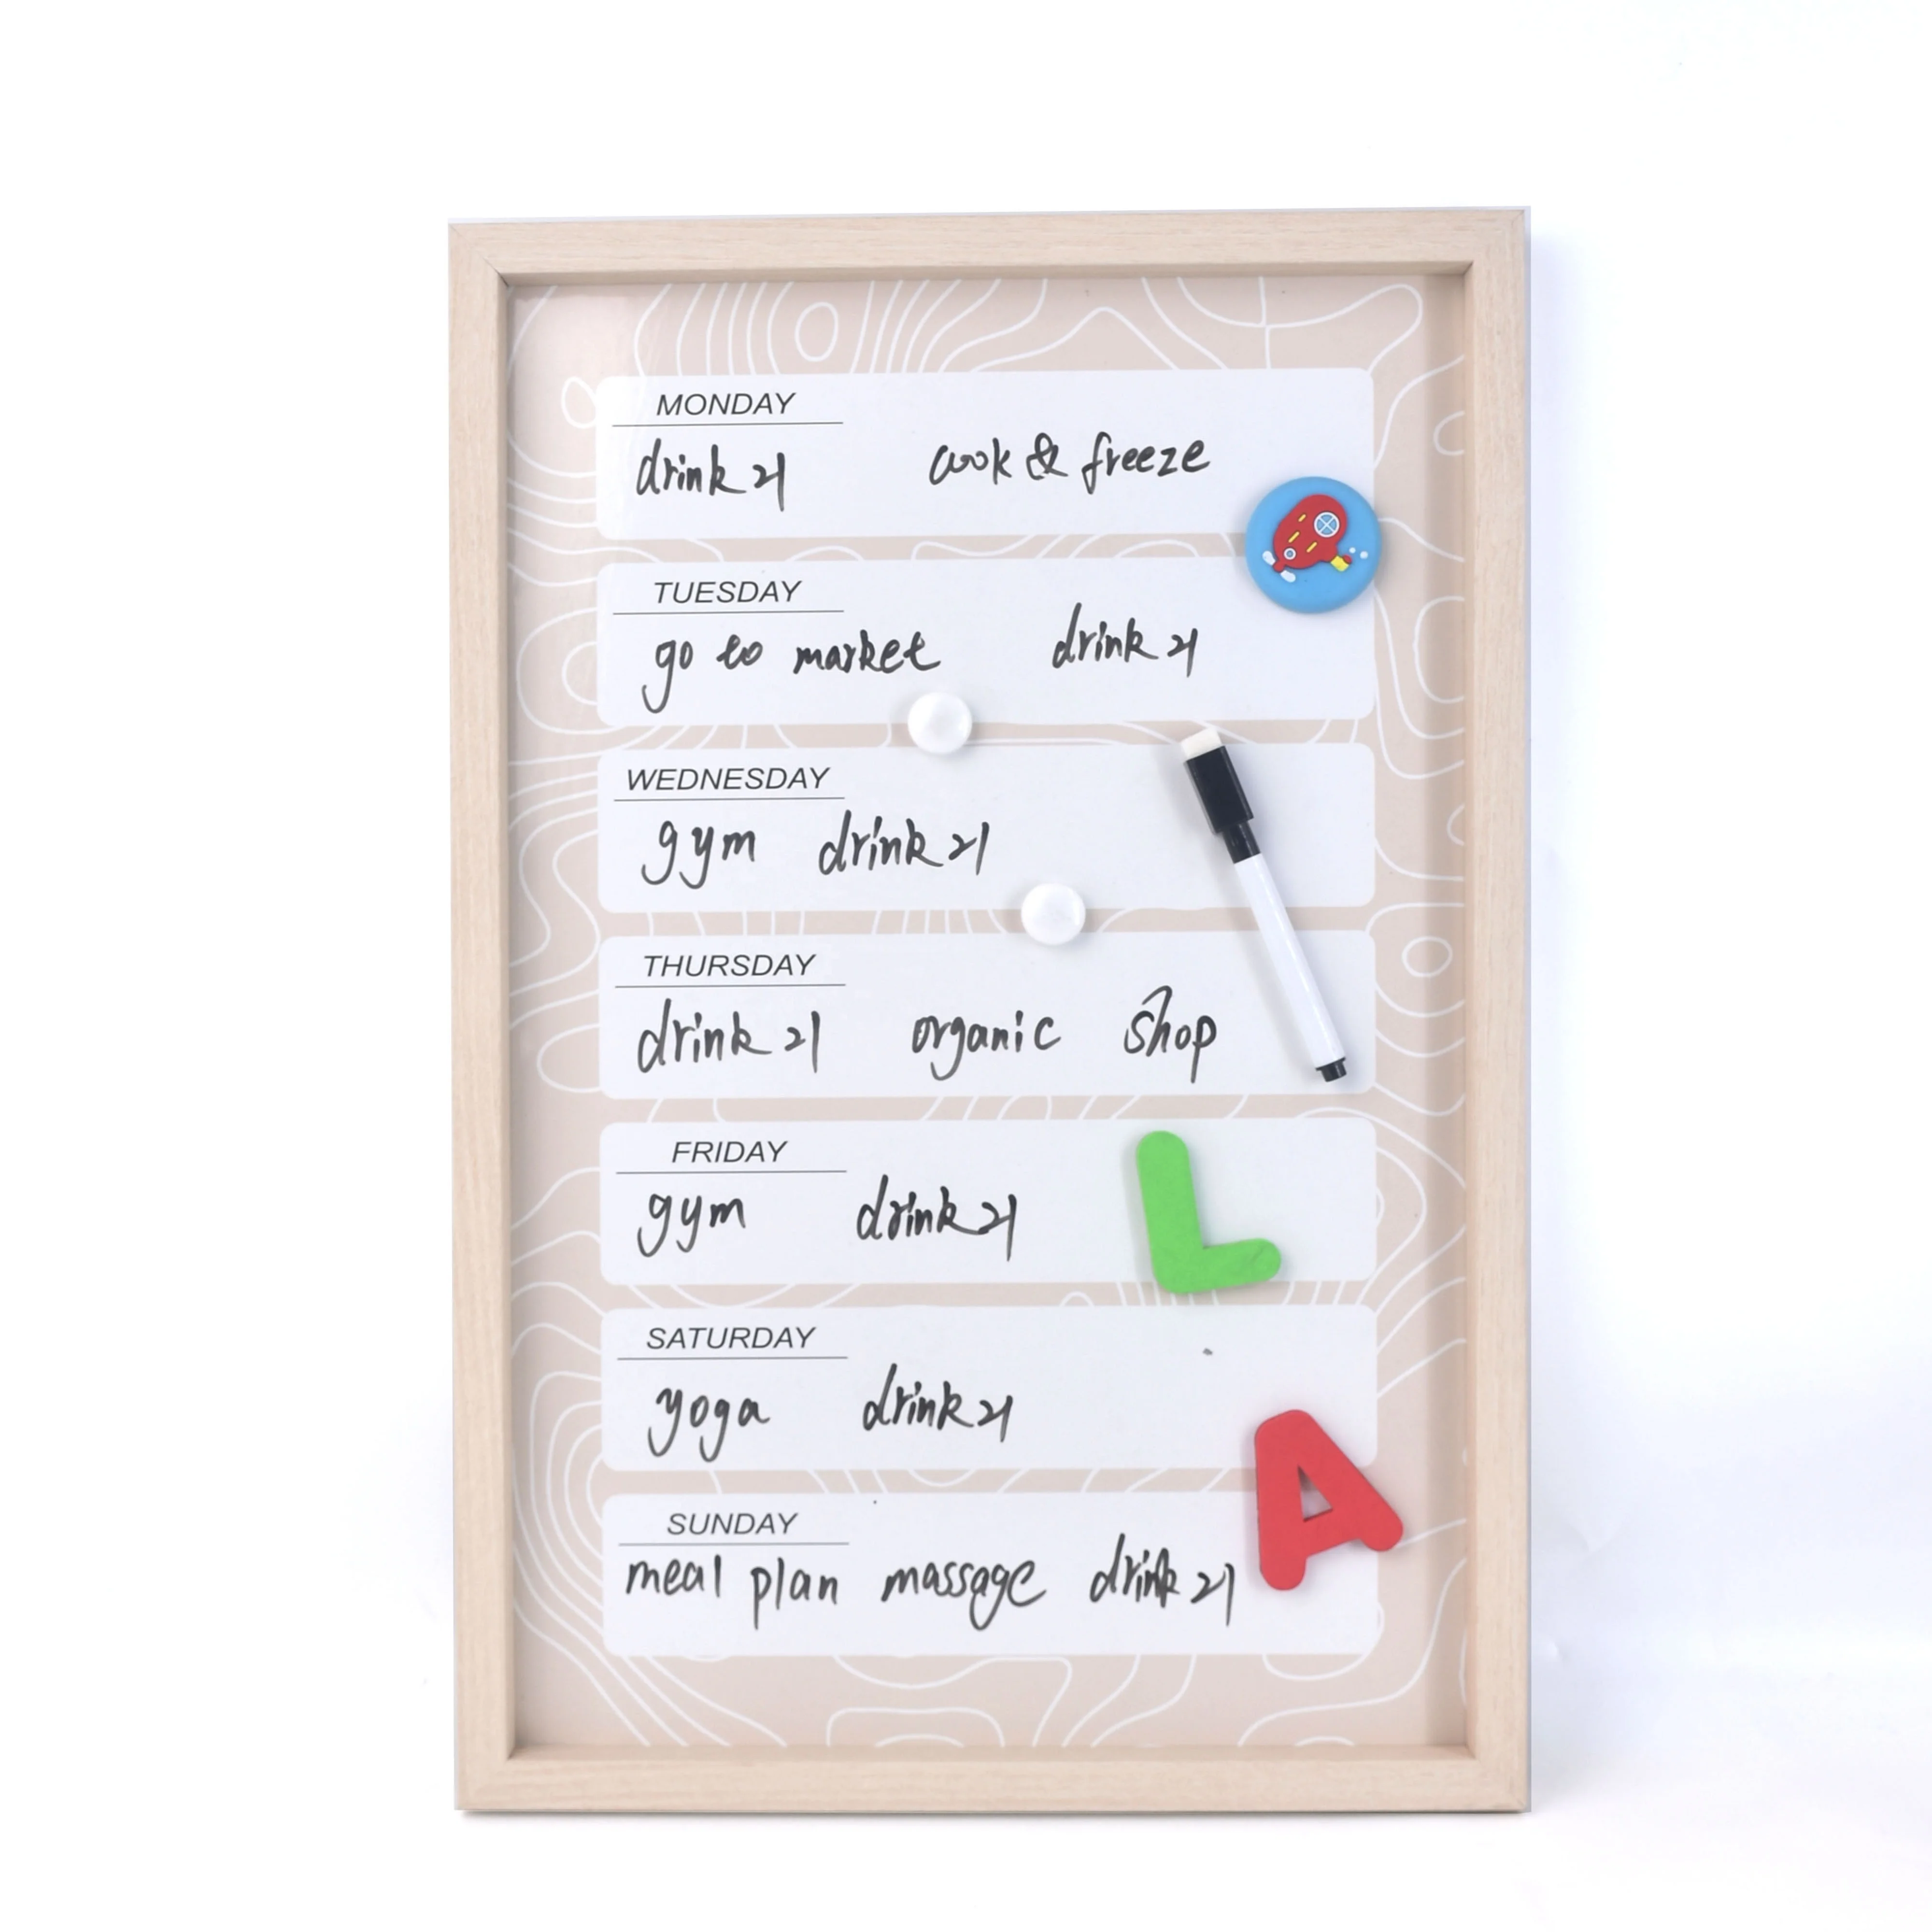 MONDAY
drink 2l cook & freeze
TUESDAY
go to market drink 2l
WEDNESDAY
gym drink 2l
THURSDAY
drink 2l organic shop
FRIDAY
gym drink 2l
SATURDAY
yoga drink 2l
SUNDAY
meal plan massage drink 2l
L
A